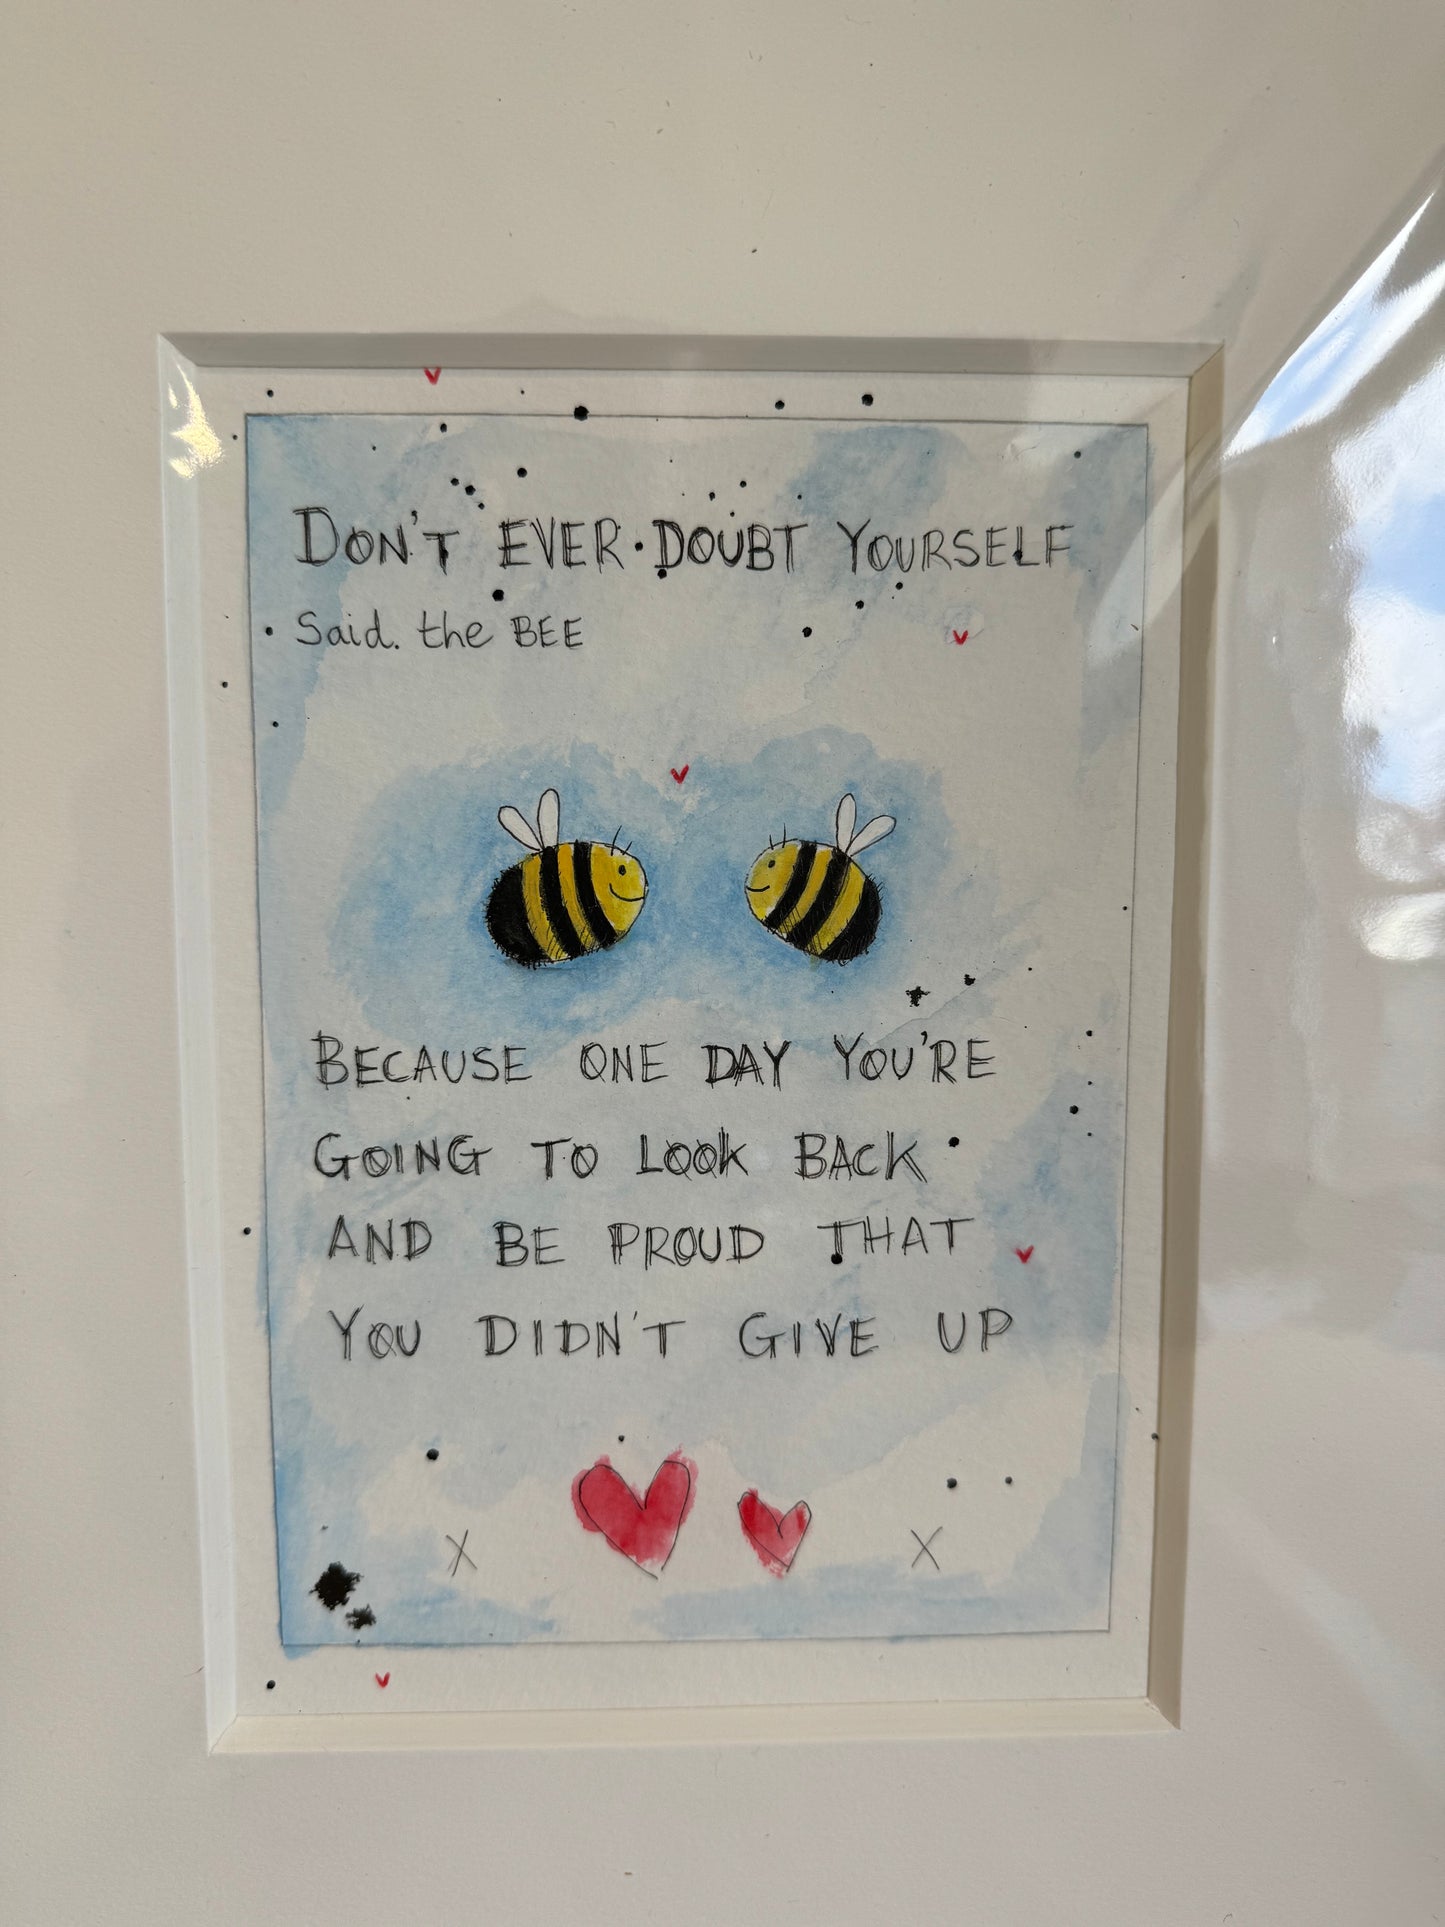 DON'T EVER DOUBT YOURSELF
Said. the BEE
BECAUSE ONE DAY YOU'RE
GOING TO LOOK BACK
AND BE PROUD THAT
YOU DIDN'T GIVE UP
X X